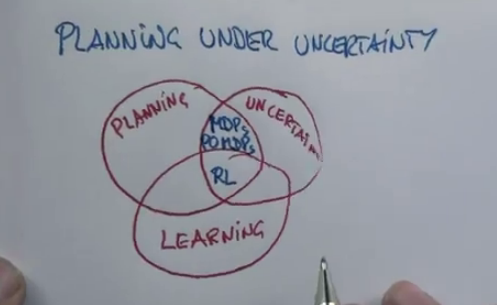 PLANNING UNDER UNCERTAINTY
PLANNING
UNCERTAIN
MDPs
POMDPs
RL
LEARNING